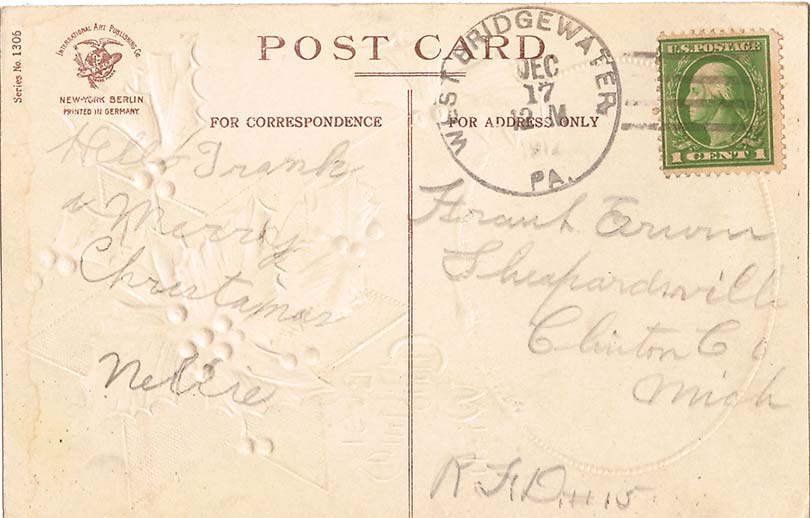 Series No. 1306
INTERNATIONAL ART PUBLISHING Co.
NEW-YORK BERLIN
PRINTED IN GERMANY.
POST CARD
FOR CORRESPONDENCE
FOR ADDRESS ONLY
WEST BRIDGEWATER
DEC
17
12 M
1912
PA.
U.S. POSTAGE
1 CENT 1
Hello Frank
a Merry
Christamas
Nellie
Frank Erwin
Shepardsville
Clinton Co
Mich
R.F.D. 15